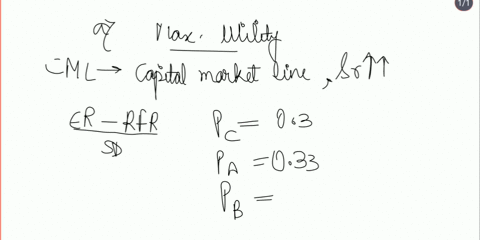 Max. Utility
CML → Capital market line, Sr↑↑
ER - RFR
SD
P_C = 0.3
P_A = 0.33
P_B =
1/1